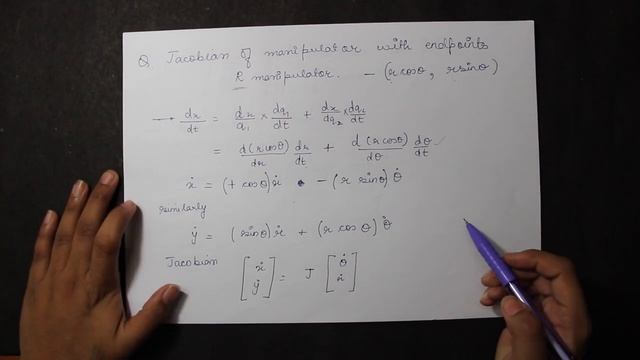 Q Jacobian of manipulator with endpoints
R manipulator. - (r cosθ, r sinθ)
→ dx/dt = dx/q₁ × dq₁/dt + dx/dq₂ × dq₂/dt
= d(r cosθ)/dr dr/dt + d(r cosθ)/dθ dθ/dt
ẋ = (+ cosθ) ṙ - (r sinθ) θ̇
similarly
ẏ = (sinθ) ṙ + (r cosθ) θ̇
Jacobian [ẋ ẏ] = J [θ̇ ṙ]